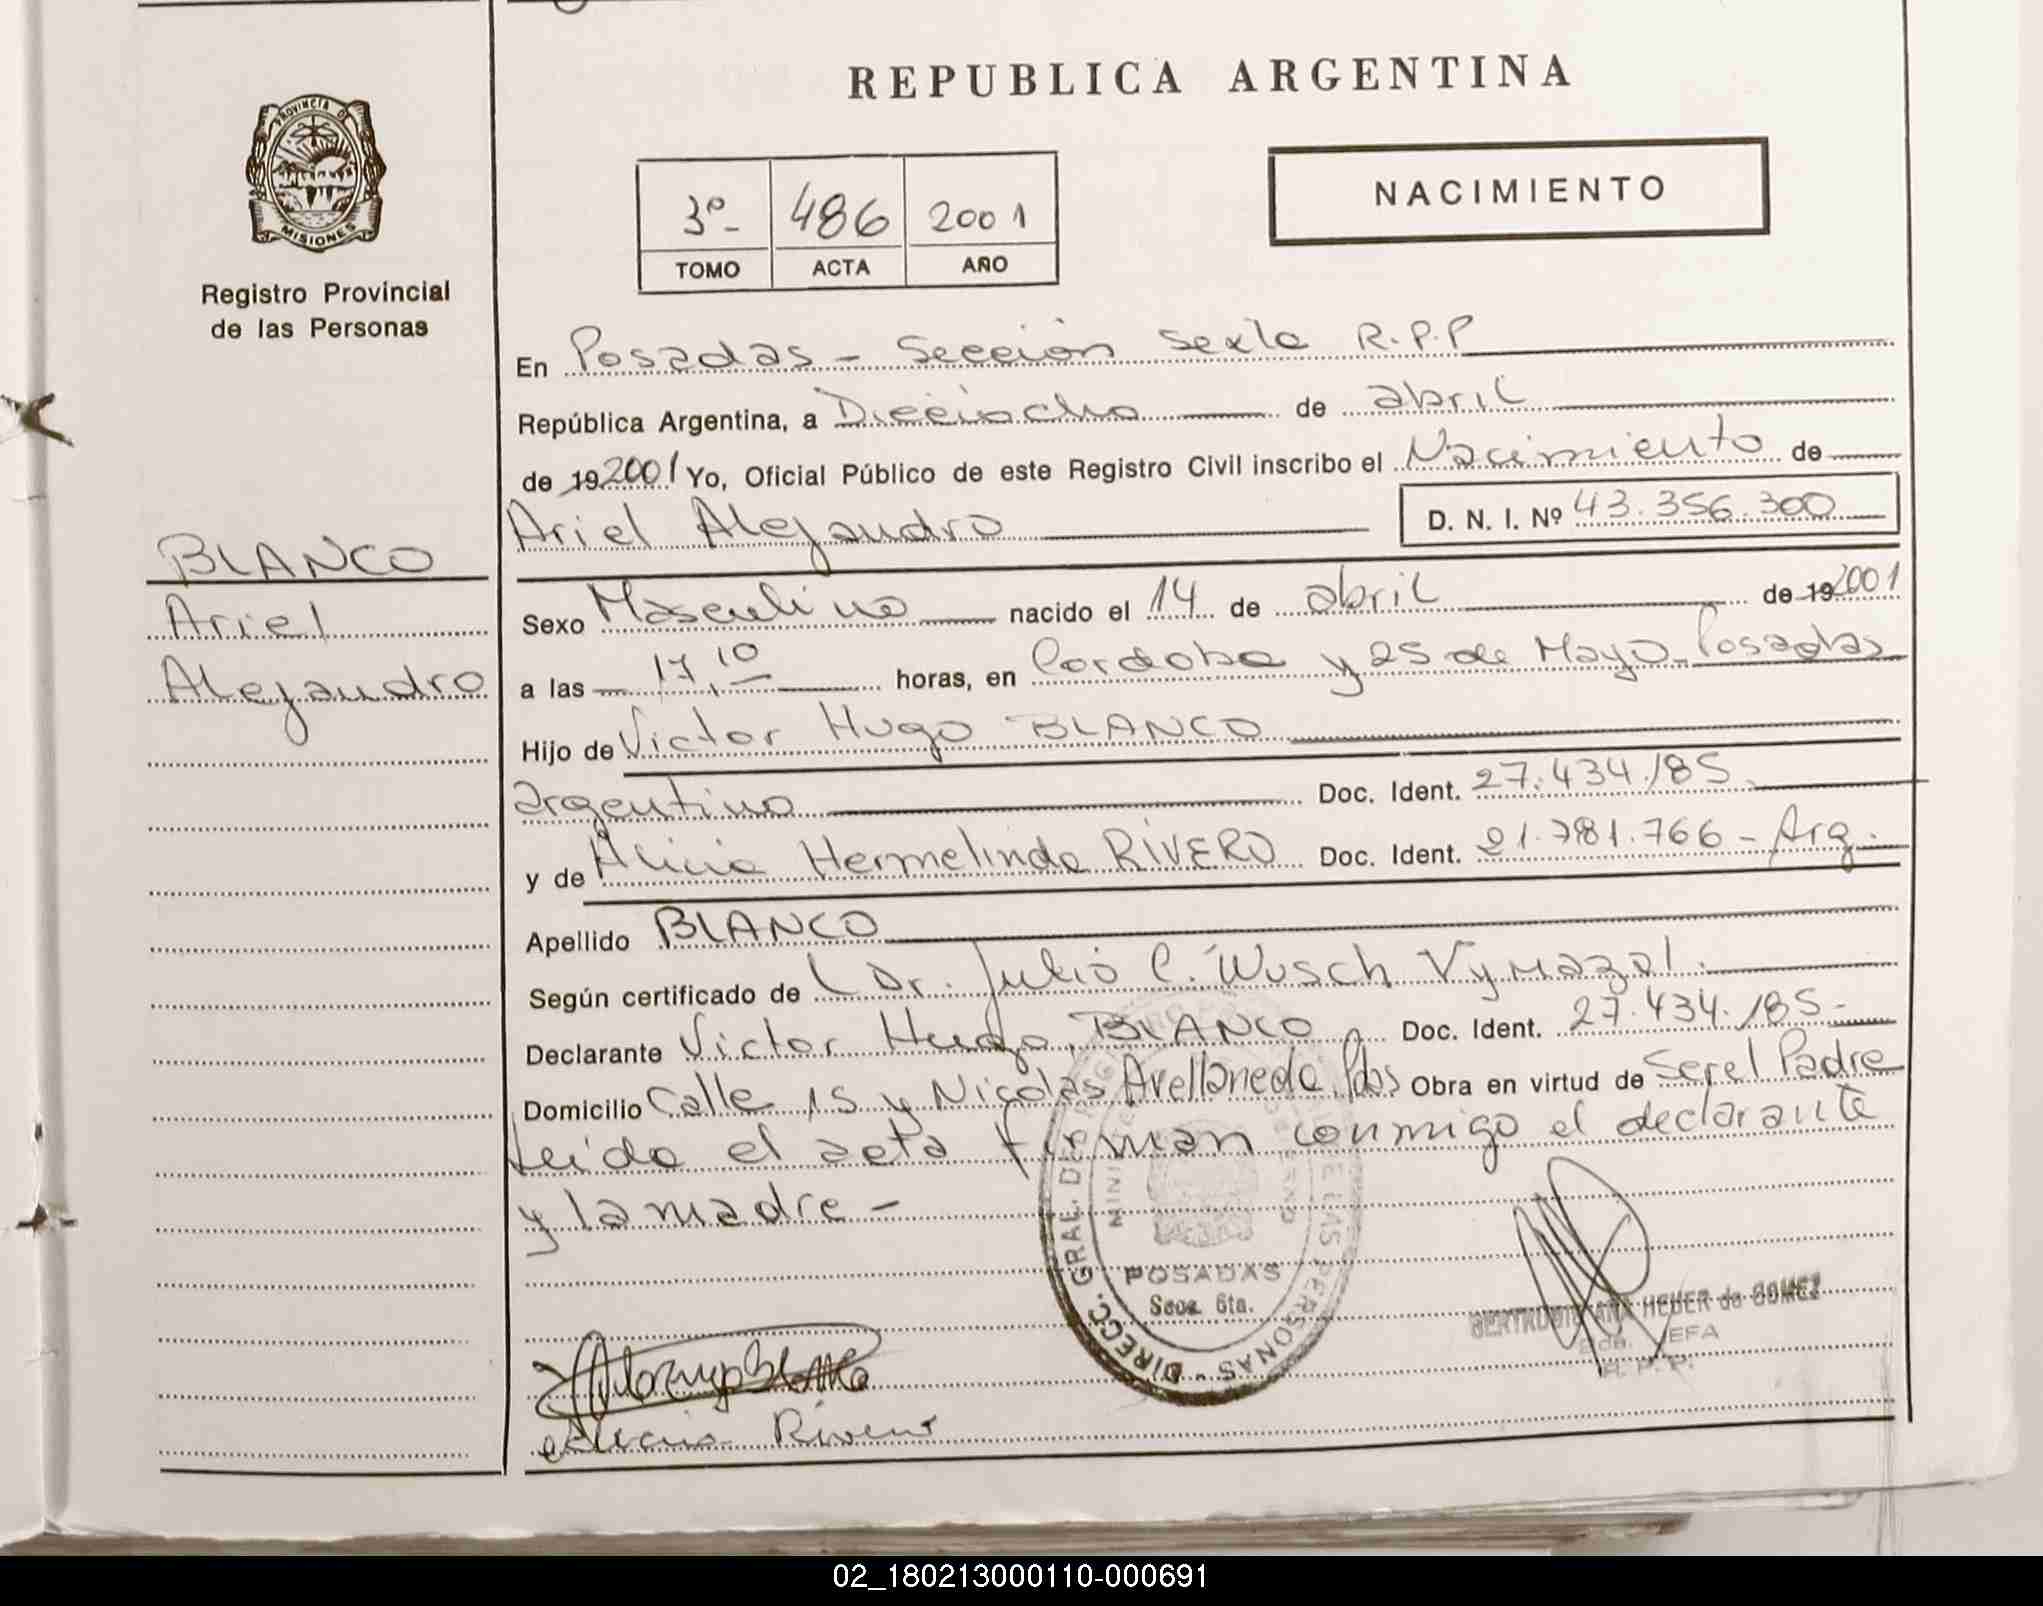 REPUBLICA ARGENTINA
PROVINCIA DE
MISIONES
Registro Provincial
de las Personas
3º 486 2001
TOMO ACTA AÑO
NACIMIENTO
En Posadas - Sección Sexta R.P.P
República Argentina, a Dieciocho de abril
de 19 2001 Yo, Oficial Público de este Registro Civil inscribo el Nacimiento de
Ariel Alejandro D. N. I. Nº 43.356.300
BLANCO
Ariel
Alejandro
Sexo Masculino nacido el 14 de abril de 19 2001
a las 17,10 horas, en Cordoba y 25 de Mayo - Posadas
Hijo de Victor Hugo BLANCO
argentino Doc. Ident. 27.434.185
y de Alicia Hermelinda RIVERO Doc. Ident. 21.781.766 - Arg.
Apellido BLANCO
Según certificado de Dr. Julio C. Wusch Vymazal.
Declarante Victor Hugo BLANCO Doc. Ident. 27.434.185-
Domicilio Calle 15 y Nicolas Avellaneda Pdas Obra en virtud de Ser el Padre
Leida el acta firman conmigo el declarante
y la madre -
DIRECC. GRAL. DE PERSONAS
POSADAS
Secc. 6ta.
HEBER de GOMEZ
JEFA
R. P. P.
Alicia Rivero
02_180213000110-000691